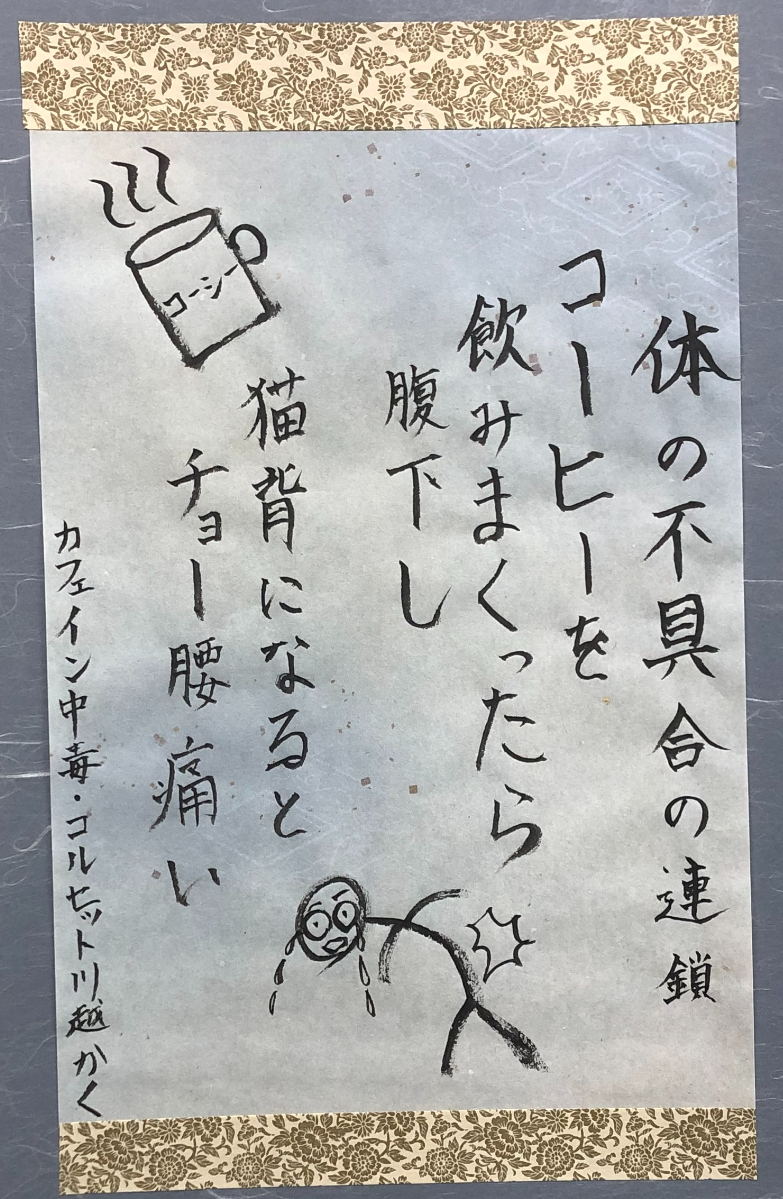 体の不具合の連鎖
コーヒーを
飲みまくったら
腹下し
猫背になると
チョー腰痛い
カフェイン中毒・コルセット川越かく
コーシー